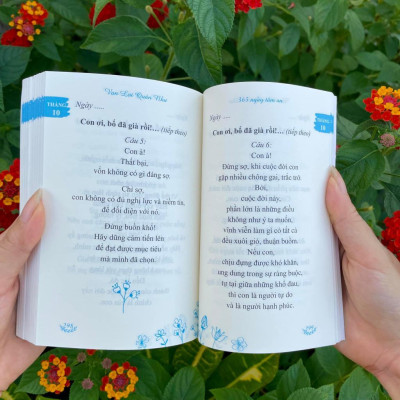 Vạn Lợi Quân Như
THÁNG
10
Ngày ....
Con ơi, bố đã già rồi!... (tiếp theo)
Câu 5:
Con à!
Thất bại,
vốn không có gì đáng sợ.
Chỉ sợ,
con không có đủ nghị lực và niềm tin,
để đối diện với nó.
Đừng buồn khổ!
Hãy dũng cảm tiến lên
để đạt được mục tiêu
mà mình đã chọn.
365 ngày tâm an
THÁNG
10
Ngày ....
Con ơi, bố đã già rồi!... (tiếp theo)
Câu 6:
Con à!
Đừng sợ, khi cuộc đời con
gặp nhiều chông gai, trắc trở.
Bởi,
cuộc đời này,
phần lớn là những điều
không như ý ta muốn,
vĩnh viễn làm gì có tất cả
đều xuôi gió, thuận buồm.
Nếu con,
chịu đựng được khó khăn,
ung dung trong sự ràng buộc,
tự tại giữa những khổ đau,
thì con là người tự do
và là người hạnh phúc.